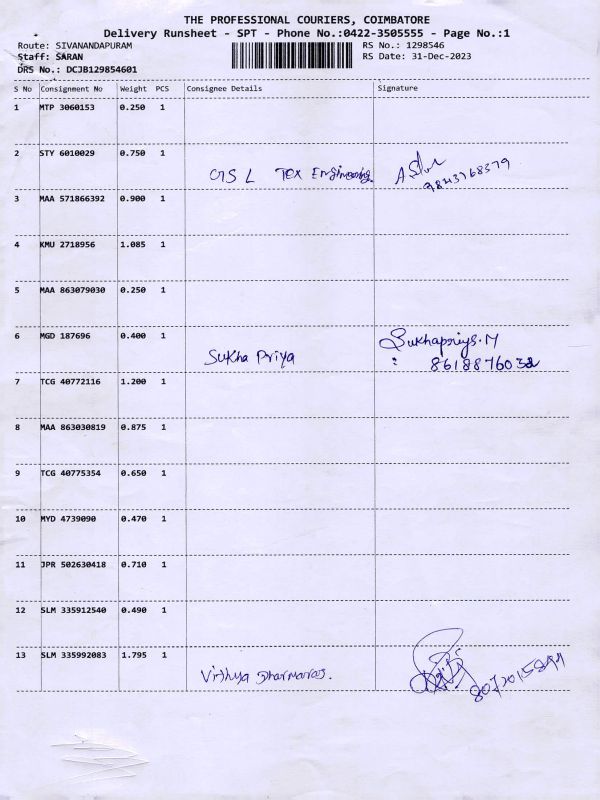 THE PROFESSIONAL COURIERS, COIMBATORE
Delivery Runsheet - SPT - Phone No.:0422-3505555 - Page No.:1
Route: SIVANANDAPURAM
RS No.: 1298546
Staff: SARAN
RS Date: 31-Dec-2023
DRS No.: DCJB129854601
S No Consignment No Weight PCS Consignee Details Signature
1 MTP 3060153 0.250 1
2 STY 6010029 0.750 1
L Tex Engineering
9843768379
3 MAA 571866392 0.900 1
4 KMU 2718956 1.085 1
5 MAA 863079030 0.250 1
6 MGD 187696 0.400 1
Sukhapriya.M
Sukha Priya : 8618876032
7 TCG 40772116 1.200 1
8 MAA 863030819 0.875 1
9 TCG 40775354 0.650 1
10 MYD 4739090 0.470 1
11 JPR 502630418 0.710 1
12 SLM 335912540 0.490 1
13 SLM 335992083 1.795 1
Vithya Dharmaraj.